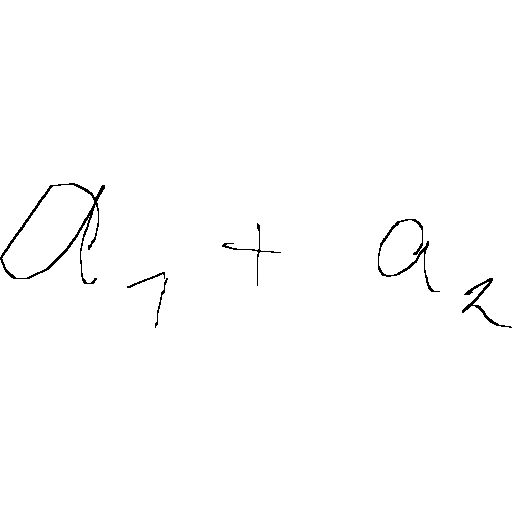 a₁ + a₂